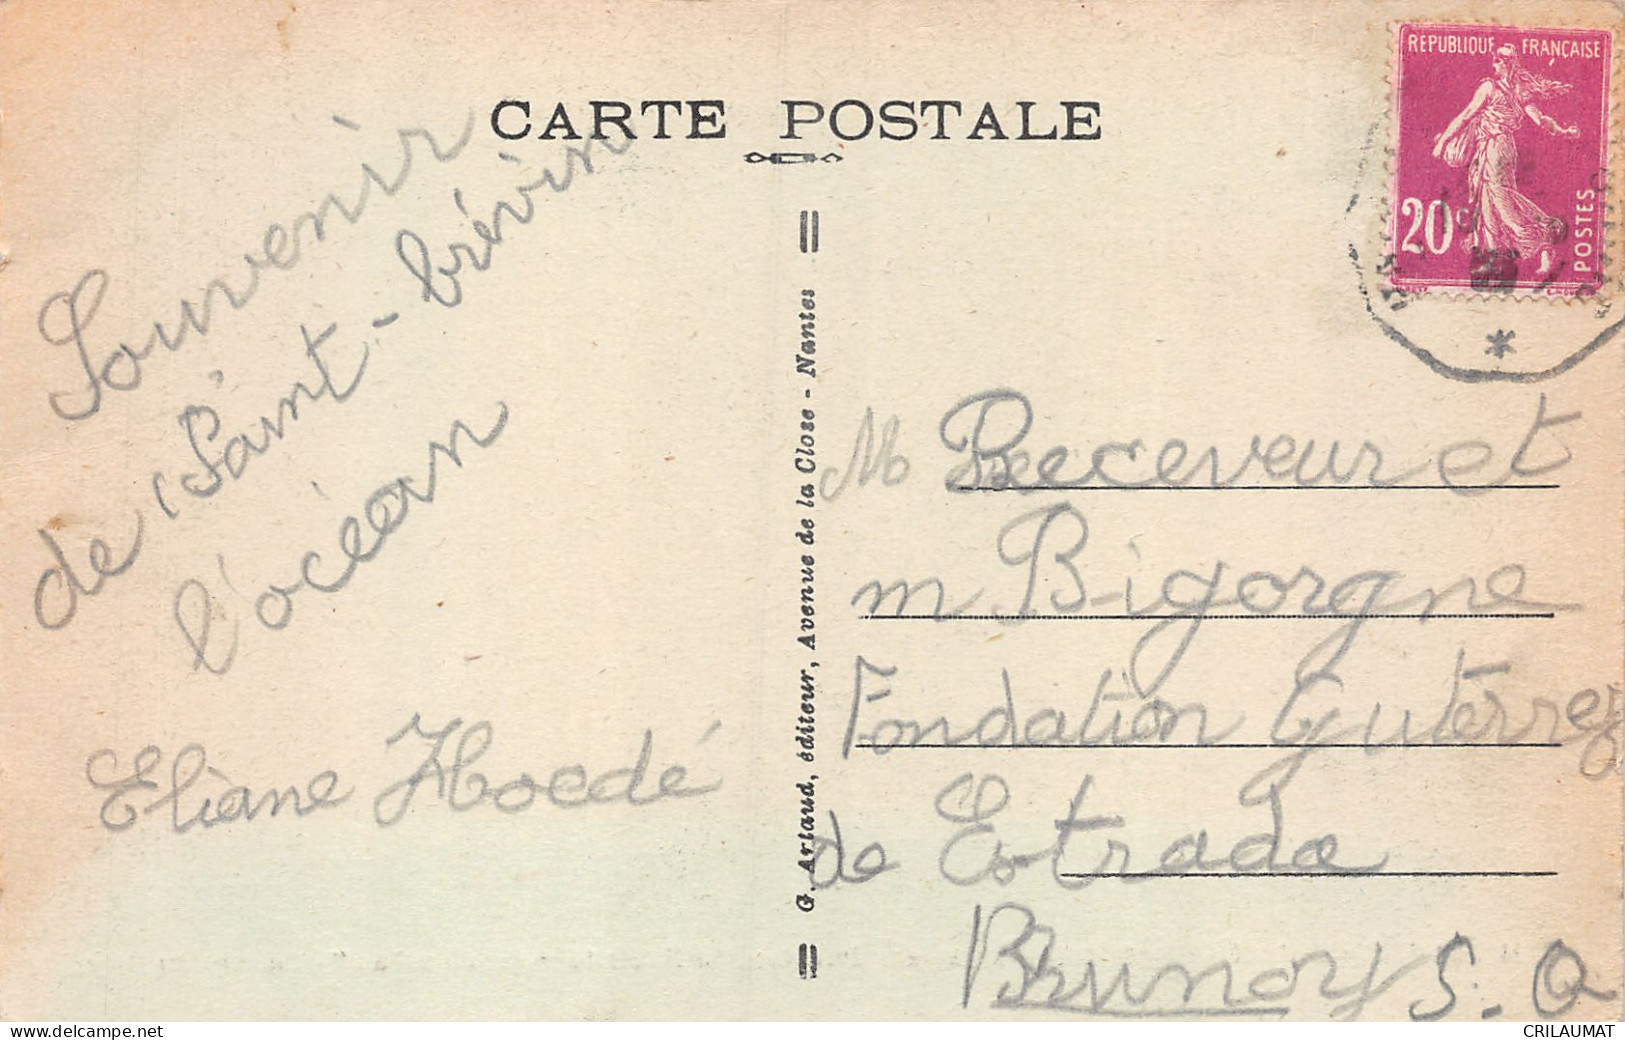 CARTE POSTALE
REPUBLIQUE FRANÇAISE
20c
POSTES
Souvenir
de Saint-brévin
l'océan
Eliane Hoedé
G. Artaud, éditeur, Avenue de la Close - Nantes
M Receveur et
m Bigorgne
Fondation Guterrez
de Estrada
Brunoy S. O
www.delcampe.net
CRILAUMAT